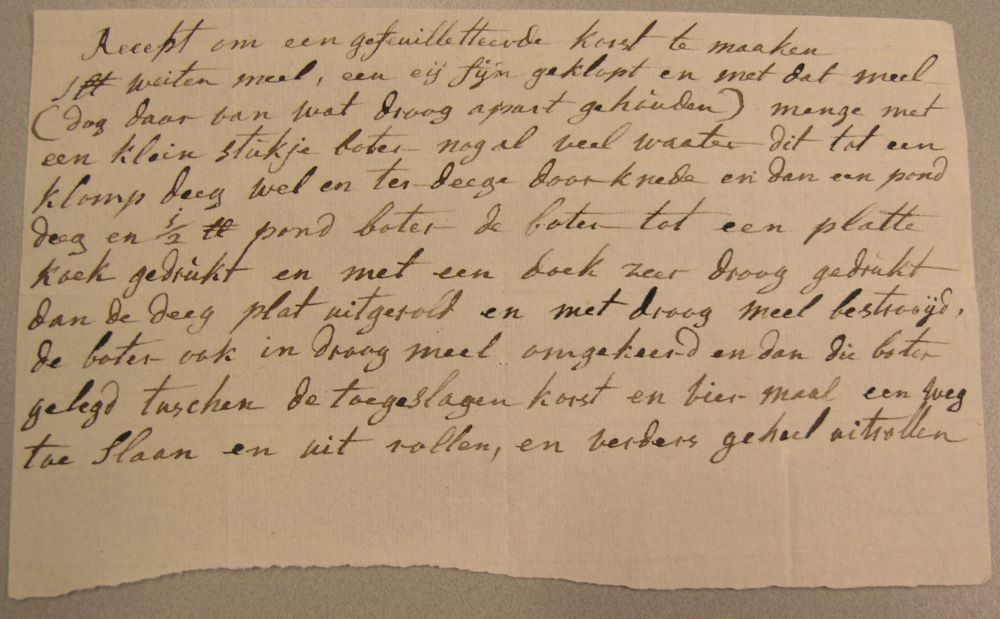 Recept om een gefeuilletteerde korst te maaken
1 ℔ weiten meel, een eij fijn geklopt en met dat meel
(dog daar van wat droog apart gehouden) menge met
een klein stukje boter nog al veel waater dit tot een
klomp deeg wel en ter deege door knede en dan een pond
deeg en 1/2 ℔ pond boter de boter tot een platte
koek gedrukt en met een doek zeer droog gedrukt
dan de deeg plat uitgerold en met droog meel bestrooijd,
de boter ook in droog meel omgekeerd en dan die boter
gelegd tuschen de toegeslagen korst en vier maal een weg
toe slaan en uit rollen, en verders geheel uitrollen